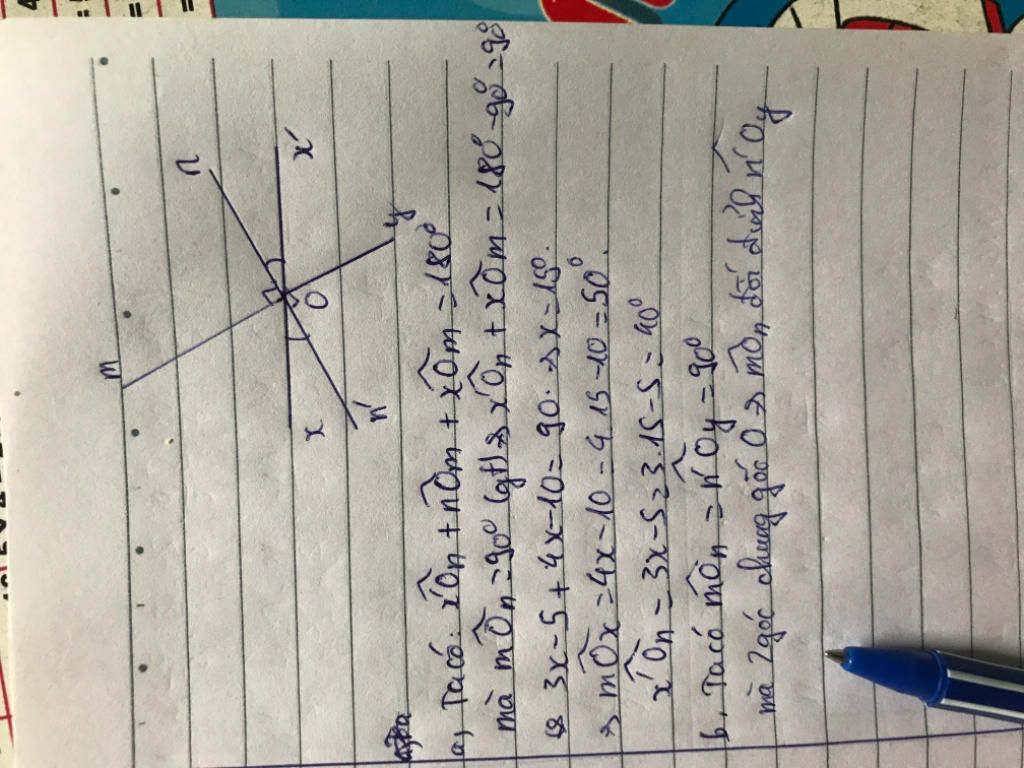 m
n
x
O
x'
n'
y
a, Ta có: x'Ôn + nÔm + xÔm = 180°
mà mÔn = 90° (gt) => x'Ôn + xÔm = 180° - 90° = 90°
3x - 5 + 4x - 10 = 90. => x = 15°.
=> mÔx = 4x - 10 = 4. 15 - 10 = 50°.
x'Ôn = 3x - 5 = 3.15 - 5 = 40°
b, Ta có mÔn = n'Ôy = 90°
mà 2 góc chung gốc O => mÔn đối đỉnh n'Ôy